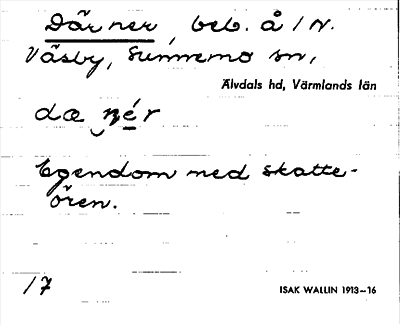 Där ner, beb. å 1 N.
Väsby, Sunnemo sn,
Älvdals hd, Värmlands län
dæ nér
Egendom med skatte-
ören.
17
ISAK WALLIN 1913–16